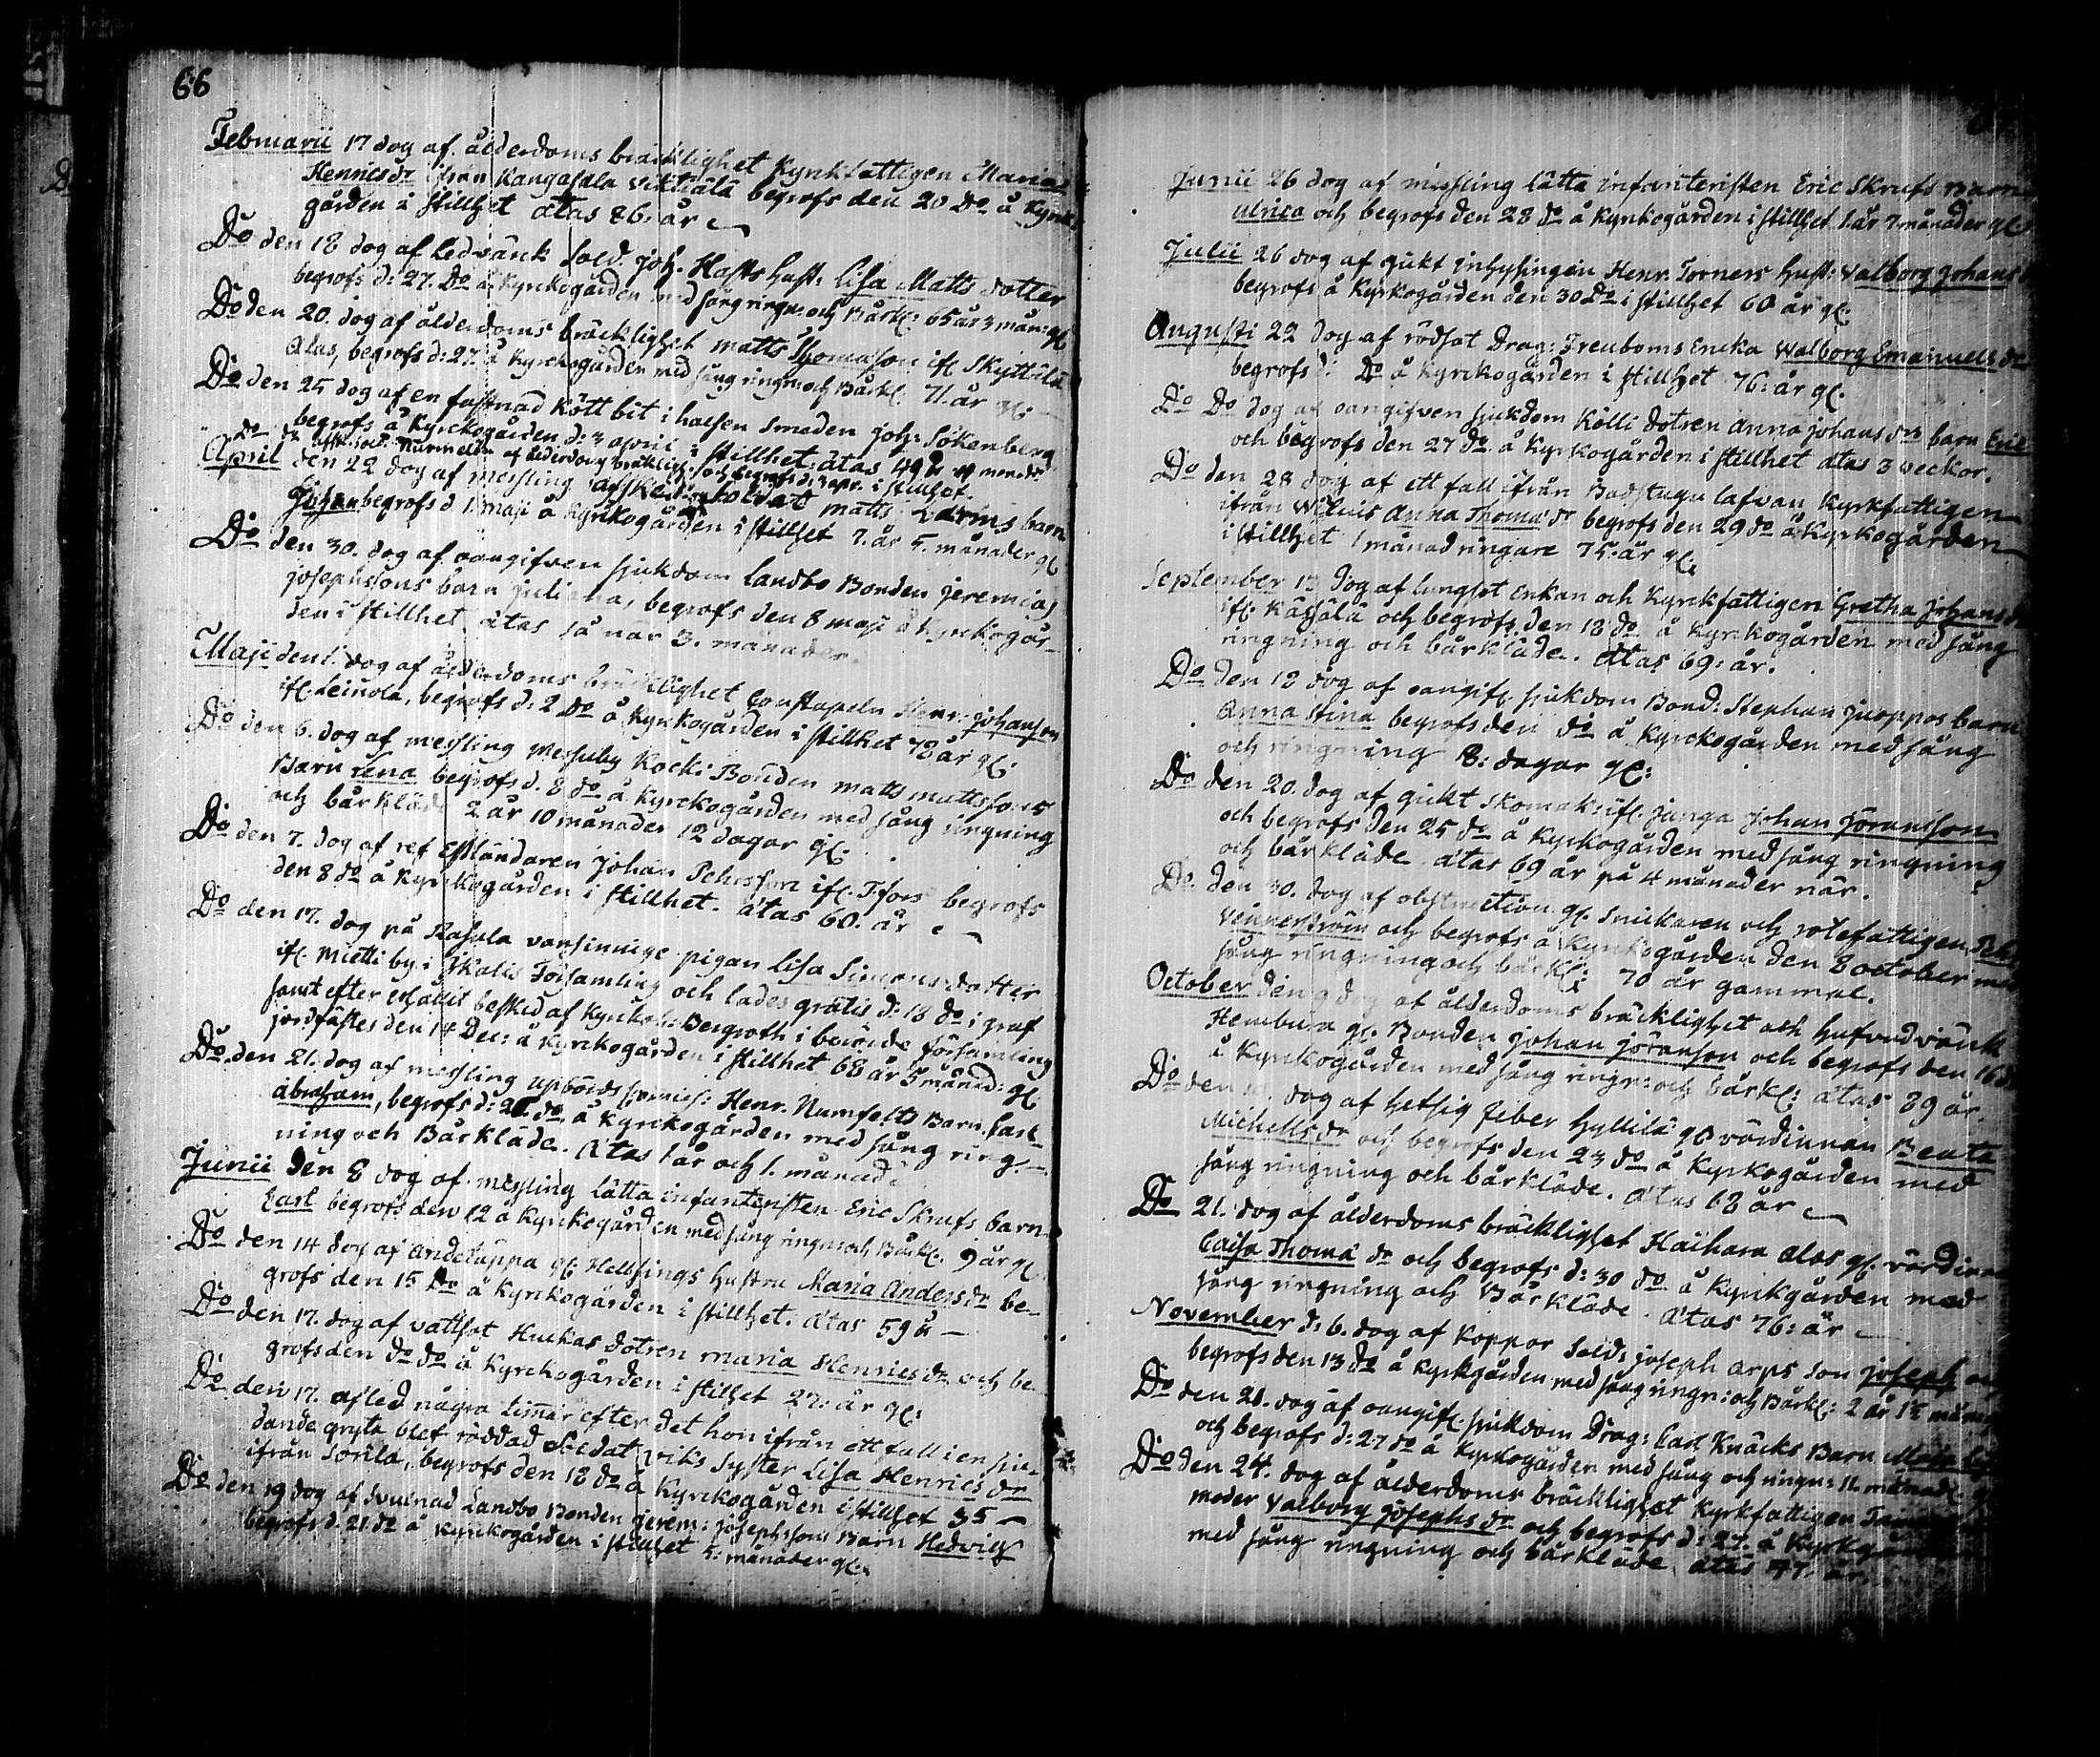 66
Februarii 17 dog af ålderdoms bräcklighet Kyrkfattigen Maria
Henricsdr ifrån Kangasala begrofs den 20 Do å Kyrk-
gården i stillhet ætas 86: år
Do den 18 dog af Ledvärck Sold. Joh. Hafts hust: Lisa Matts dotter
begrofs d: 27. Do å Kyrckogården med sång ringn: och Bårkl: 65 år 3 mån: gl
Do den 20. dog af ålderdoms bräcklighet Matts Thomasson ifl Skyttälä
Alas, begrofs d: 27 å Kyrckogården med sång ringn och Bårkl: 71. år gl:
Do den 25 dog af en fastnad Kött bit i halsen Smeden Joh: Sökenberg
begrofs å Kyrckogården d: 3 april i stillhet. ätas 49 år
Do af ålderdoms bräkligh: och begrofs d: 3 apr. i stillhet.
April den 22 dog af messling afskedade soldat Matts barn
Johan begrofs d 1. maji å Kyrckogården i stillhet 2. år 5. månader gl
Do den 30. dog af oangifven sjukdom Landbo Bonden Jeremias
Josephssons barn Juliana, begrofs den 8 maji å Kyrckogår-
den i stillhet ätas så när 3. månader.
Maji den 1. dog af ålderdoms bräcklighet Constapeln Henr: Johansson
ifl. Leinola, begrofs d: 2 Do å Kyrckogården i stillhet 72 år gl:
Do den 6. dog af messling Messuby Kocki Bonden Matts Mattssons
Barn Lena begrofs d. 8 do å Kyrckogården med sång ringning
och bårkläd 2 år 10 månader 12 dagar gl:
Do den 7. dog af ref Estländaren Johan Pehrsson ifl. Tfors begrofs
den 8 do å Kyrckogården i stillhet. ätas 60. år
Do den 17. dog på Rasola vansinnige pigan Lisa Simonsdotter
ifl. Mietti by i Ikalis Församling och lades gratis d: 18 do i graf
samt efter erhållit besked af Kyrkoh: Bergroth i berörde församling
jordfästes den 14 Dec: å Kyrckogården i stillhet 68 år 5 månad: gl.
Do den 21. dog af messling upbörds Henr. Numfelts Barn Carl
Abraham, begrofs d: 28 do å Kyrckogården med sång ring-
ning och Bårkläde. Ætas 1 år och 1. månad
Junii den 8 dog af messling lätta infanteristen Eric Skrufs barn
Carl begrofs den 12 å Kyrckogården med sång ringn och Bårkl: 9 år gl
Do den 14 dog af andetäppa gl: Helbsings hustru Maria Andersdr be-
grofs den 15 Do å Kyrckogården i stillhet. ätas 59 år
Do den 17. dog af vattsot Huckas dotren Maria Henricsdr och be-
grofs den do do å Kyrckogården i stillhet 27: år gl:
Do den 17. afled några timar efter det hon ifrån ett fall i en siu-
dande gryta blef räddad Soldat viks syster Lisa Henricsdr
ifrån Sorila, begrofs den 18 do å Kyrckogården i stillhet 35
Do den 19 dog af svulnad Landbo Bonden Jerem: Josephssons Barn Hedvig
begrofs d. 21. do å Kyrckogården i stillhet 5: månader gl.
Junii 26 dog af messling lätta infanteristen Eric Skrufs Barn
Ulrica och begrofs den 28 do å Kyrkogården i stillhet 1. år 7. månader gl:
Julii 26 dog af gikt inhysingen Henr. Torners hust: Valborg Johans
begrofs å Kyrkogården den 30 Do i stillhet 60 år gl:
Augusti 22 dog af rödsot Drag: Freuboms Encka Walborg Emanuelsdr
begrofs d: Do å Kyrckogården i stillhet 76: år gl:
Do Do dog af oangifven sjukdom Källi dotren Anna Johans drs barn Eric
och begrofs den 27 do å Kyrkogården i stillhet ätas 3 veckor.
Do den 28 dog af ett fall ifrån Badstugu lafvan Kyrkfattigen
ifrån Anna Thomædr begrofs den 29 do å Kyrkogården
i stillhet 1 månad ringare 75: år gl:
September 13 dog af lungsot enkan och Kyrkfattigen Gretha Johansdr
ifl. Kässälä och begrofs den 18 do å Kyrkogården med sång
ringning och bårkläde. Ætas 69: år.
Do den 18 dog af oangifl. sjukdom Bond: Stephan Juoppos barn
Anna Stina begrofs den do å Kyrckogården med sång
och ringning 8: dagar gl:
Do den 20. dog af gukt Skomak: ifl. Junga Johan Jöransson
och begrofs den 25 do å Kyrkogården med sång ringning
och bårkläde ætas 69 år på 4 månader när.
Do den 30. dog af obstruction gl. Snickaren och rotefattigen
Vennerström och begrofs å Kyrkogården den 8 october med
sång ringning och bårkl: 70 år gammal.
October den 9 dog af ålderdoms bräcklighet och hufvudvärck
gl. Bonden Johan Jöransson och begrofs den 16 do
å Kyrckogården med sång ringn: och bårkl: ætas 89 år
Do den dog af hetsig feber Hyllilä gl värdinnan Beata
Michelsdr och begrofs den 23 do å Kyrkogården med
sång ringning och bårkläde. ætas 62 år
Do 21. dog af ålderdoms bräcklighet Haihara Alas gl. värdinna
Caisa Thomædr och begrofs d: 30 do å Kyrkgården med
sång ringning och Bårkläde. ætas 76: år
November d: 6. dog af Koppor Sold: Joseph Arps Son Joseph
begrofs den 13 do å Kyrkgården med sång ringn: och Bårkl: 2 år
Do den 21. dog af oangifl. sjukdom Drag: Carl Knäcks Barn Maja
och begrofs d: 27 do å Kyrkogården med sång och ringn: 11. månad:
Do den 24. dog af ålderdoms bräcklighet Kyrkfattigen
moder Valborg Josephsdr och begrofs d: 27. å Kyrkgården
med sång ringning och bårkläde. ætas 77. år.